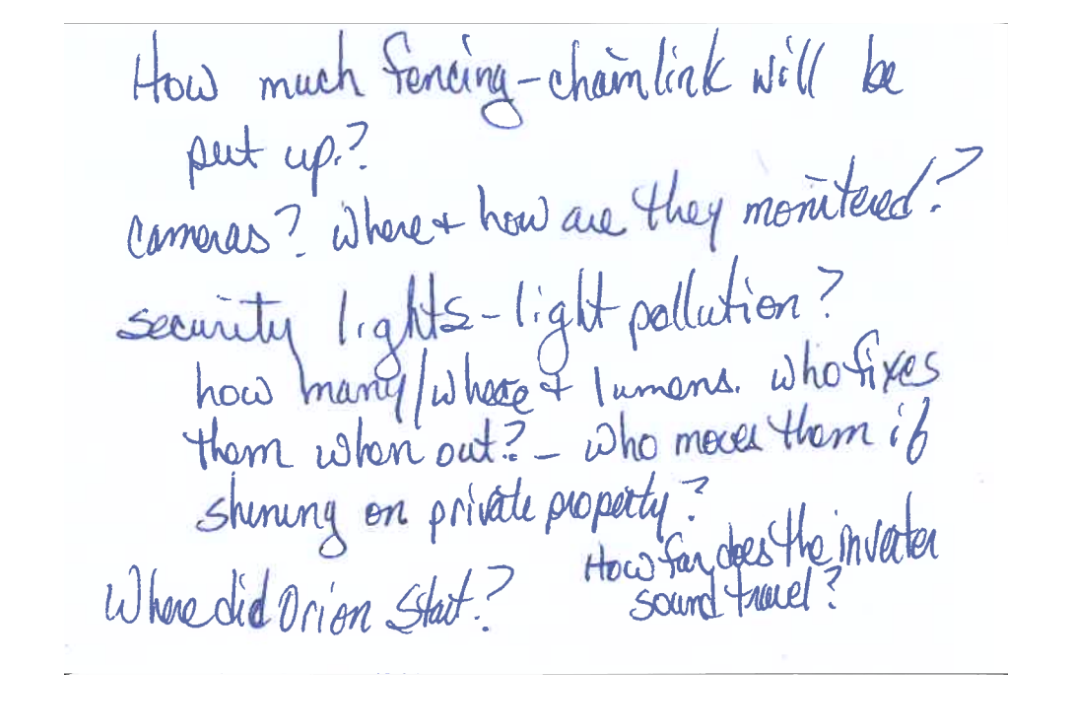 How much fencing - chainlink will be
put up.?
Cameras? Where + how are they monitered?
security lights - light pollution?
how many/where + lumens. who fixes
them when out? - who moves them if
shining on private property?
How far does the inverter
sound travel?
Where did Orion Start?